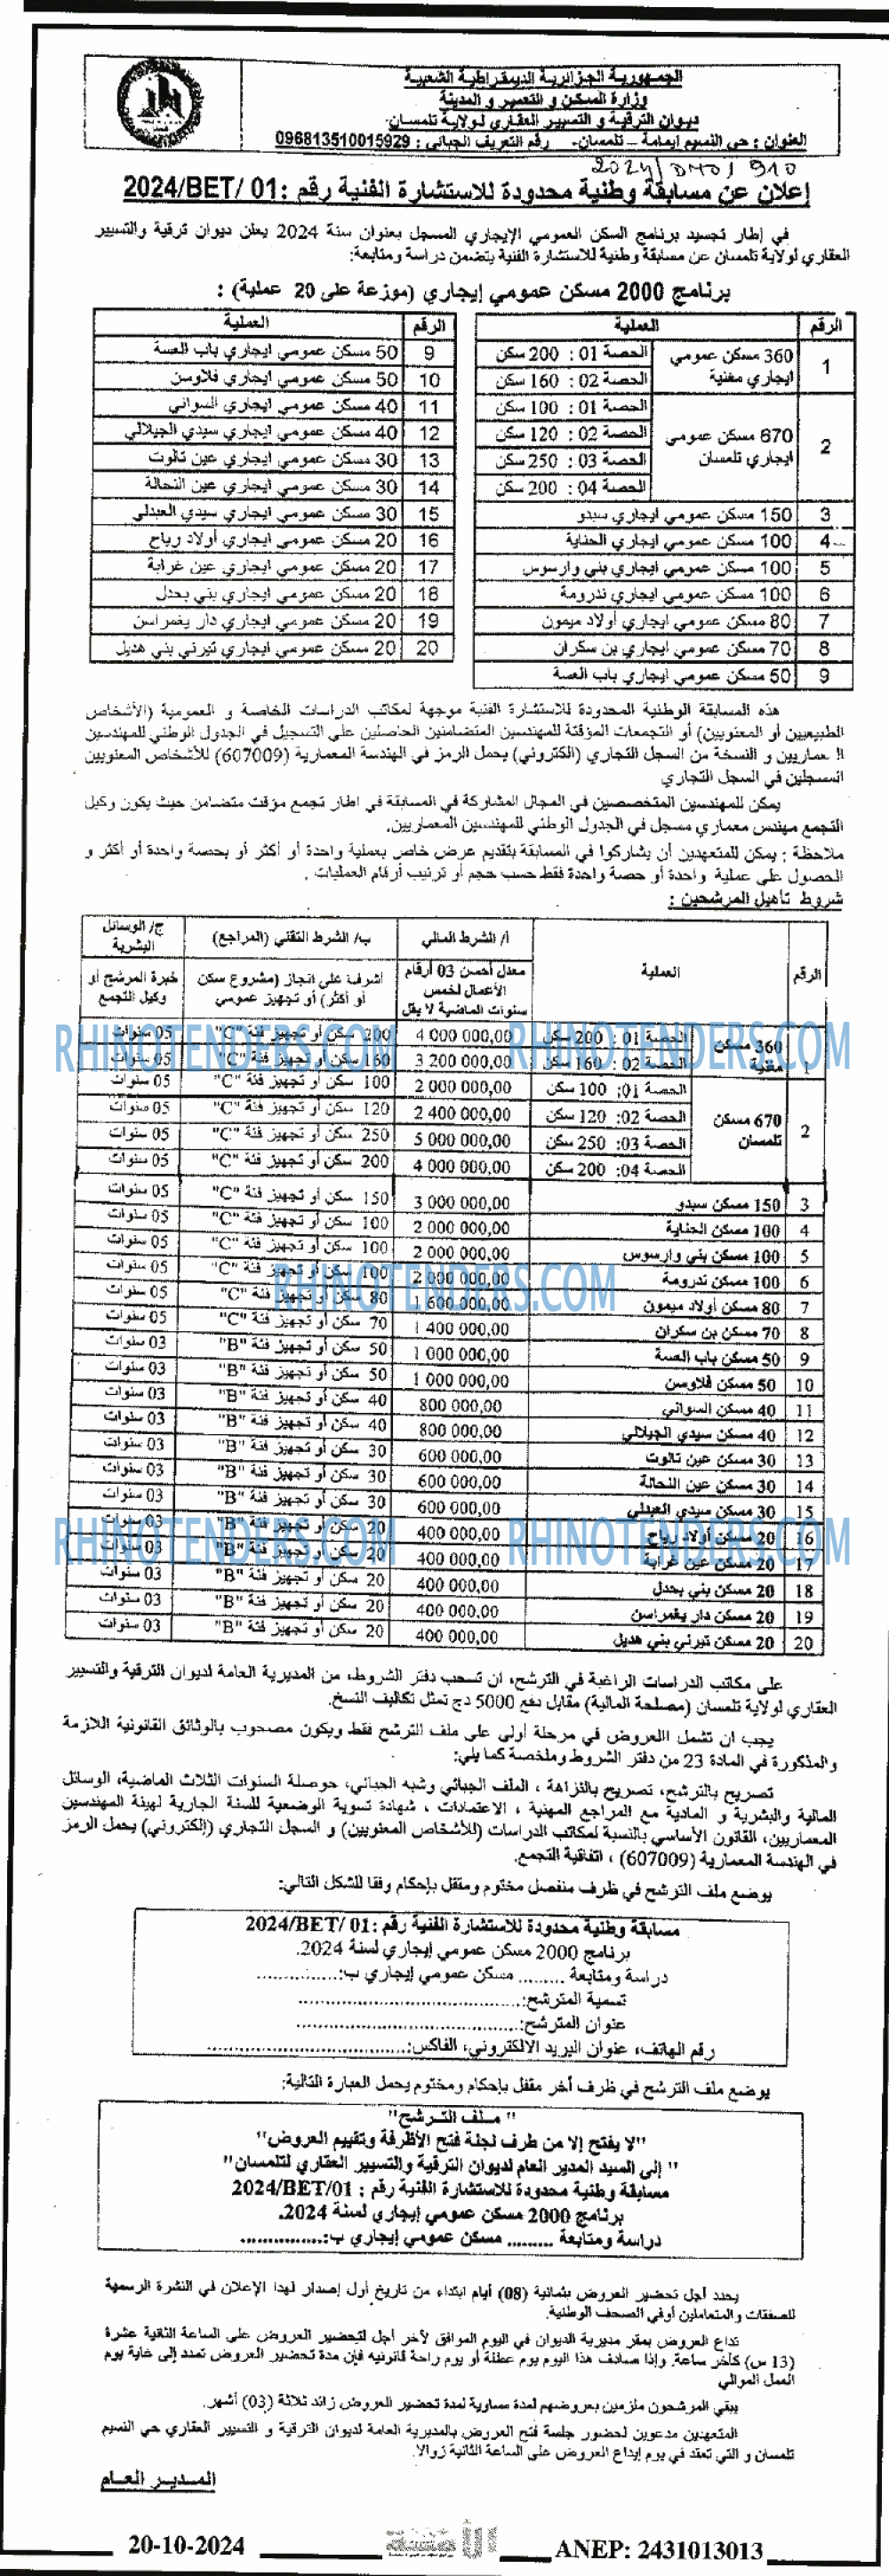 الجمهورية الجزائرية الديمقراطية الشعبية
وزارة السكن و التعمير و المدينة
ديوان الترقية و التسيير العقاري لولاية تلمسان
العنوان : حي النسيم إيمامة – تلمسان- رقم التعريف الجبائي : 096813510015929
إعلان عن مسابقة وطنية محدودة للاستشارة الفنية رقم :01 /BET/2024
في إطار تجسيد برنامج السكن العمومي الإيجاري المسجل بعنوان سنة 2024 يعلن ديوان ترقية والتسيير
العقاري لولاية تلمسان عن مسابقة وطنية للاستشارة الفنية يتضمن دراسة ومتابعة:
برنامج 2000 مسكن عمومي إيجاري (موزعة على 20 عملية) :
الرقم العملية
1 360 مسكن عمومي ايجاري مغنية
الحصة 01 : 200 سكن
الحصة 02 : 160 سكن
2 670 مسكن عمومي ايجاري تلمسان
الحصة 01 : 100 سكن
الحصة 02 : 120 سكن
الحصة 03 : 250 سكن
الحصة 04 : 200 سكن
3 150 مسكن عمومي ايجاري سبدو
4 100 مسكن عمومي ايجاري الحناية
5 100 مسكن عمومي ايجاري بني وارسوس
6 100 مسكن عمومي ايجاري ندرومة
7 80 مسكن عمومي ايجاري أولاد ميمون
8 70 مسكن عمومي ايجاري بن سكران
9 50 مسكن عمومي ايجاري باب العسة
الرقم العملية
9 50 مسكن عمومي ايجاري باب العسة
10 50 مسكن عمومي ايجاري فلاوسن
11 40 مسكن عمومي ايجاري السواني
12 40 مسكن عمومي ايجاري سيدي الجيلالي
13 30 مسكن عمومي ايجاري عين تالوت
14 30 مسكن عمومي ايجاري عين النحالة
15 30 مسكن عمومي ايجاري سيدي العبدلي
16 20 مسكن عمومي ايجاري أولاد رياح
17 20 مسكن عمومي ايجاري عين غرابة
18 20 مسكن عمومي ايجاري بني بحدل
19 20 مسكن عمومي ايجاري دار يغمراسن
20 20 مسكن عمومي ايجاري تيرني بني هديل
هذه المسابقة الوطنية المحدودة للاستشارة الفنية موجهة لمكاتب الدراسات الخاصة و العمومية (الأشخاص
الطبيعيين أو المعنويين) أو التجمعات المؤقتة للمهندسين المتضامنين الحاصلين على التسجيل في الجدول الوطني للمهندسين
المعماريين و النسخة من السجل التجاري (الكتروني) يحمل الرمز في الهندسة المعمارية (607009) للأشخاص المعنويين
المسجلين في السجل التجاري
يمكن للمهندسين المتخصصين في المجال المشاركة في المسابقة في اطار تجمع مؤقت متضامن حيث يكون وكيل
التجمع مهندس معماري مسجل في الجدول الوطني للمهندسين المعماريين.
ملاحظة : يمكن للمتعهدين أن يشاركوا في المسابقة بتقديم عرض خاص بعملية واحدة أو أكثر أو بحصة واحدة أو أكثر و
الحصول على عملية واحدة أو حصة واحدة فقط حسب حجم أو ترتيب أرقام العمليات .
شروط تأهيل المرشحين :
الرقم العملية أ/ الشرط المالي ب/ الشرط التقني (المراجع) ج/ الوسائل البشرية
معدل أحسن 03 أرقام الأعمال لخمس سنوات الماضية لا يقل
أشرف على انجاز (مشروع سكن أو أكثر) أو تجهيز عمومي
خبرة المرشح أو وكيل التجمع
1 360 مسكن مغنية
الحصة 01 : 200 سكن 4 000 000,00 200 سكن أو تجهيز فئة "C" 05 سنوات
الحصة 02 : 160 سكن 3 200 000,00 160 سكن أو تجهيز فئة "C" 05 سنوات
2 670 مسكن تلمسان
الحصة 01: 100 سكن 2 000 000,00 100 سكن أو تجهيز فئة "C" 05 سنوات
الحصة 02: 120 سكن 2 400 000,00 120 سكن أو تجهيز فئة "C" 05 سنوات
الحصة 03: 250 سكن 5 000 000,00 250 سكن أو تجهيز فئة "C" 05 سنوات
الحصة 04: 200 سكن 4 000 000,00 200 سكن أو تجهيز فئة "C" 05 سنوات
3 150 مسكن سبدو 3 000 000,00 150 سكن أو تجهيز فئة "C" 05 سنوات
4 100 مسكن الحناية 2 000 000,00 100 سكن أو تجهيز فئة "C" 05 سنوات
5 100 مسكن بني وارسوس 2 000 000,00 100 سكن أو تجهيز فئة "C" 05 سنوات
6 100 مسكن ندرومة 2 000 000,00 100 سكن أو تجهيز فئة "C" 05 سنوات
7 80 مسكن أولاد ميمون 600 000,00 80 سكن أو تجهيز فئة "C" 05 سنوات
8 70 مسكن بن سكران 1 400 000,00 70 سكن أو تجهيز فئة "C" 05 سنوات
9 50 مسكن باب العسة 1 000 000,00 50 سكن أو تجهيز فئة "B" 03 سنوات
10 50 مسكن فلاوسن 1 000 000,00 50 سكن أو تجهيز فئة "B" 03 سنوات
11 40 مسكن السواني 800 000,00 40 سكن أو تجهيز فئة "B" 03 سنوات
12 40 مسكن سيدي الجيلالي 800 000,00 40 سكن أو تجهيز فئة "B" 03 سنوات
13 30 مسكن عين تالوت 600 000,00 30 سكن أو تجهيز فئة "B" 03 سنوات
14 30 مسكن عين النحالة 600 000,00 30 سكن أو تجهيز فئة "B" 03 سنوات
15 30 مسكن سيدي العبدلي 600 000,00 30 سكن أو تجهيز فئة "B" 03 سنوات
16 20 مسكن أولاد رياح 400 000,00 20 سكن أو تجهيز فئة "B" 03 سنوات
17 20 مسكن عين غرابة 400 000,00 20 سكن أو تجهيز فئة "B" 03 سنوات
18 20 مسكن بني بحدل 400 000,00 20 سكن أو تجهيز فئة "B" 03 سنوات
19 20 مسكن دار يغمراسن 400 000,00 20 سكن أو تجهيز فئة "B" 03 سنوات
20 20 مسكن تيرني بني هديل 400 000,00 20 سكن أو تجهيز فئة "B" 03 سنوات
RHINOTENDERS.COM RHINOTENDERS.COM
RHINOTENDERS.COM
RHINOTENDERS.COM RHINOTENDERS.COM
على مكاتب الدراسات الراغبة في الترشح، ان تسحب دفتر الشروط، من المديرية العامة لديوان الترقية والتسيير
العقاري لولاية تلمسان (مصلحة المالية) مقابل دفع 5000 دج تمثل تكاليف النسخ.
يجب ان تشمل العروض في مرحلة أولى على ملف الترشح فقط ويكون مصحوب بالوثائق القانونية اللازمة
والمذكورة في المادة 23 من دفتر الشروط وملخصة كما يلي:
تصريح بالترشح، تصريح بالنزاهة ، الملف الجبائي وشبه الجبائي، حوصلة السنوات الثلاث الماضية، الوسائل
المالية والبشرية و المادية مع المراجع المهنية ، الاعتمادات ، شهادة تسوية الوضعية للسنة الجارية لهيئة المهندسين
المعماريين، القانون الأساسي بالنسبة لمكاتب الدراسات (للأشخاص المعنويين) و السجل التجاري (إلكتروني) يحمل الرمز
في الهندسة المعمارية (607009) ، اتفاقية التجمع.
يوضع ملف الترشح في ظرف منفصل مختوم ومقفل بإحكام وفقا للشكل التالي:
مسابقة وطنية محدودة للاستشارة الفنية رقم :01 /BET/2024
برنامج 2000 مسكن عمومي إيجاري لسنة 2024.
دراسة ومتابعة ......... مسكن عمومي إيجاري ب:...............
تسمية المترشح:........................................
عنوان المترشح:........................................
رقم الهاتف، عنوان البريد الالكتروني، الفاكس:...................................
يوضع ملف الترشح في ظرف أخر مقفل بإحكام ومختوم يحمل العبارة التالية:
" ملف الترشح"
"لا يفتح إلا من طرف لجنة فتح الأظرفة وتقييم العروض"
" إلى السيد المدير العام لديوان الترقية والتسيير العقاري لتلمسان"
مسابقة وطنية محدودة للاستشارة الفنية رقم : 01/BET/2024
برنامج 2000 مسكن عمومي إيجاري لسنة 2024.
دراسة ومتابعة ......... مسكن عمومي إيجاري ب:...............
يحدد أجل تحضير العروض بثمانية (08) أيام ابتداء من تاريخ أول إصدار لهذا الإعلان في النشرة الرسمية
للصفقات والمتعاملين أو في الصحف الوطنية.
تداع العروض بمقر مديرية الديوان في اليوم الموافق لأخر أجل لتحضير العروض على الساعة الثانية عشرة
(13 س) كأخر ساعة. وإذا صادف هذا اليوم يوم عطلة أو يوم راحة قانونيه فإن مدة تحضير العروض تمدد إلى غاية يوم
العمل الموالي
يبقي المرشحون ملزمين بعروضهم لمدة مساوية لمدة تحضير العروض زائد ثلاثة (03) أشهر.
المتعهدين مدعوين لحضور جلسة فتح العروض بالمديرية العامة لديوان الترقية و التسيير العقاري حي النسيم
تلمسان و التي تعقد في يوم إيداع العروض على الساعة الثانية زوالا.
المدير العام
20-10-2024
ANEP: 2431013013